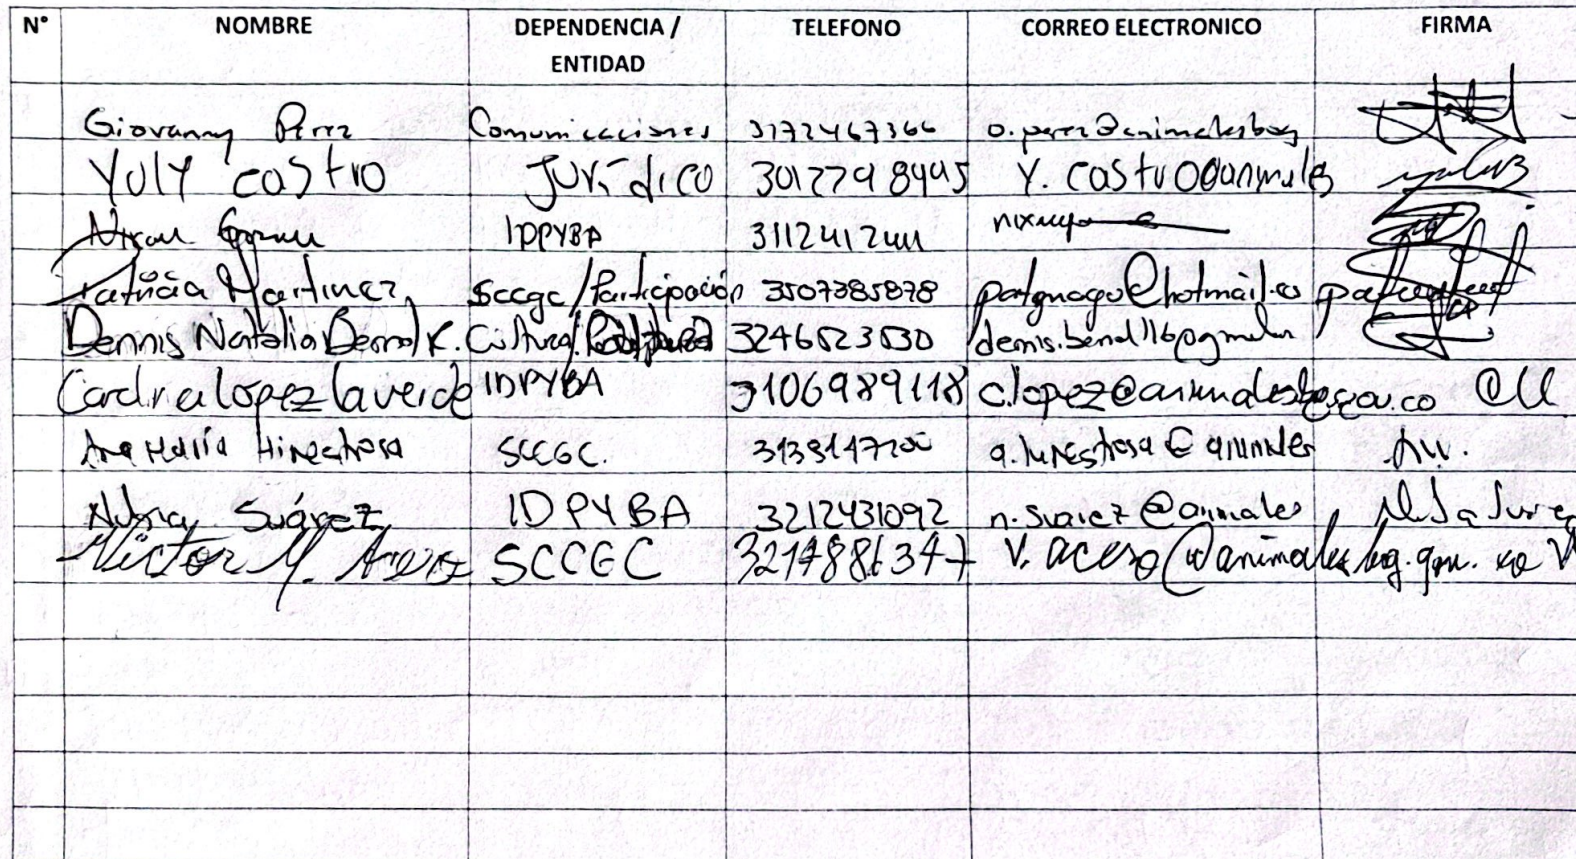 N° NOMBRE DEPENDENCIA / ENTIDAD TELEFONO CORREO ELECTRONICO FIRMA
Giovanny Pérez Comunicaciones 3172467366 o.perez@animalesbog
YULY CASTRO JURíDICO 3012798495 Y. CASTRO@animales
IDPYBA 3112412441
Patricia Martínez sccgc/Participación 3507385878
Dennis Natalia Bernal R. Cultura 3246523530
Carolina Lopez laverde IDPYBA 3106989118 c.lopez@animalesbog.gov.co
Ana María Hinestrosa SCCGC.
Nubia Suárez IDPYBA 3212431092 n.suarez@animales
Víctor M. Acero SCCGC 3214886347 v.acero@animalesbog.gov.co